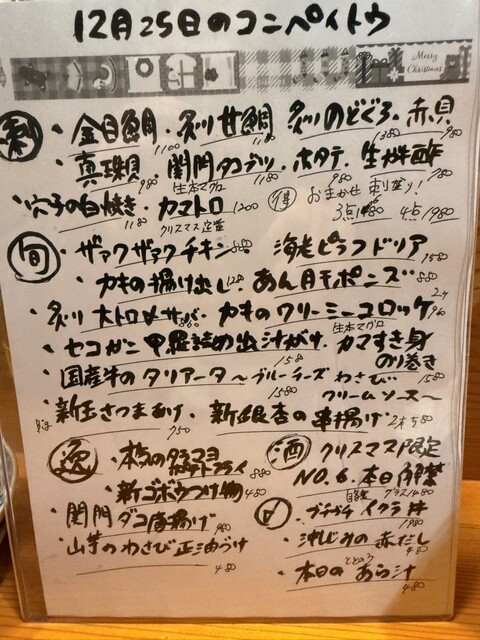 12月25日のコンペイトウ
Merry Christmas
刺
・金目鯛 1100 ・炙り甘鯛 1180 炙りのどぐろ 1380 ・赤貝 980
・真珠貝 980 ・関門タコブツ 1180 ・ホタテ 980 ・生牡蠣酢 780
・穴子の白焼き 1180 ・カマトロ 1200 生本マグロ
得 おまかせ刺盛り! 3点1480 4点1980
旬
クリスマス定番
・ザァクザァクチキン 880 海老ピラフドリア 1580
・カキの揚げ出し ・あん肝ポン酢 880
・炙り大トロ〆サバ 880 ・カキのクリーミーコロッケ 2ケ 960
・セコガニ甲羅詰め出汁がけ 1580 ・生本マグロ カマすき身のり巻き 1580
・国産牛のタリアータ〜ブルーチーズわさびクリームソース〜 1580
・新玉さつまあげ 750 ・新銀杏の串揚げ 2本580
逸
・本気のタラマヨポテトフライ 880
・新ゴボウつけ物 450
・関門ダコ唐揚げ 960
・山芋のわさび正油づけ 480
酒
クリスマス限定
NO.6 本日解禁 グラス1480
〆
・プチプチイクラ丼 1980
・しじみの赤だし 480
・本日のあら汁 480